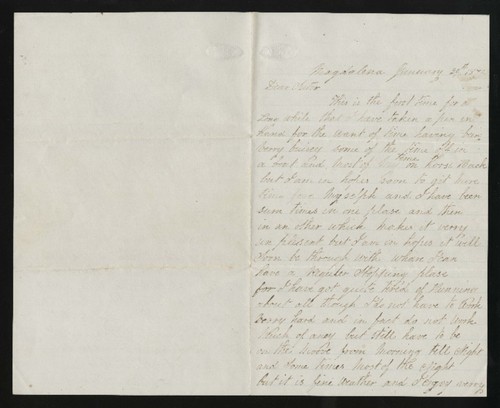 Magdalena January 25th
Dear Sister
This is the first time for a
long while that I have taken a pen in
hand for the want of time having ben
verry buisey some of the time
a boat and most of time on horse back
but I am in hopes soon to git
time for my selph and I have been
sum times in one place and then
in an other which makes it verry
un plesent but I am in hopes it will
soon be through with when I can
have a regular stopping place
for I have got quite tired of running
about all though I do not have to work
verry hard and in fact do not work
Much of aney but still have to be
on the move from morning till Night
and some times most of the Night
but it is fine weather and I enjoy verry